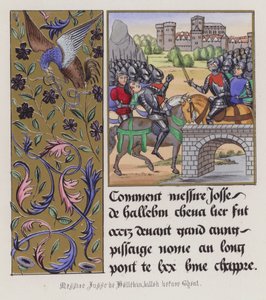 Comment messire Josse
de hallebin cheualier fut
occis deuant gand aung
passaige nome au long
pont le lxx bme chappre.
Messire Josse de Hallebin, killed before Ghent.